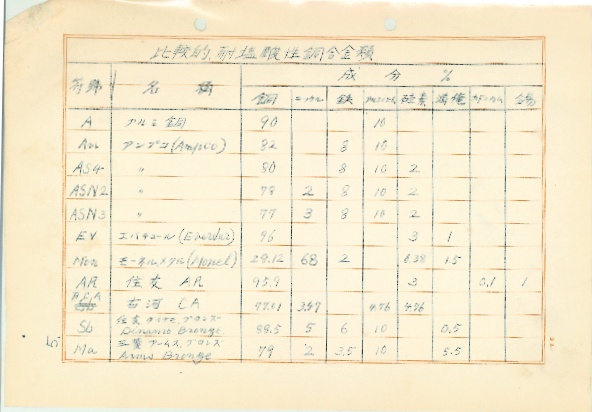 比較的、耐塩酸性銅合金類
符號 名稱 成分 %
銅 ニッケル 鉄 アルミニウム 硅素 満俺 錫
A アルミ銅 90 10
Am アンプコ(Ampco) 82 8 10
AS4 〃 80 8 10 2
ASN2 〃 78 2 8 10 2
ASN3 〃 77 3 8 10 2
EV エバヂュール(Everdur) 96 3 1
Mon モーネルメタル(Monel) 28.12 68 2 0.38 1.5
AR 住友 AR 95.9 3 0.1 1
古河 CA 3.47 4.76 4.76
Sb 住友 ダイナモ、ブロンズ 88.5 5 6 10 0.5
Dinamo Bronze.
Ma 三菱アームス、ブロンズ 79 2 3.5 10 5.5
Arms Bronze